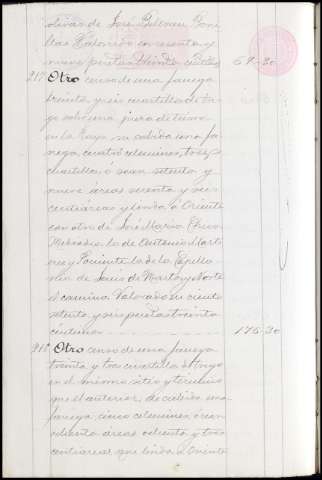 de José Guillermo
llas Valorado en sesenta y
nueve pesetas treinta céntimos 69-30
217 Otro censo de una fanega
treinta y seis cuartillos de tri
go sobre una jera de tierra
en la Raya su cabida una fa
nega, cuatro celemines, tres
cuartillos, o sean setenta y
nueve áreas sesenta y seis
centiáreas y linda á Oriente
con otra de José María
Mediodia la de Antonio Mart
inez y Poniente la de la Capella
nia de Luis de Marta y Norte
el camino. Valorado en ciento
setenta y seis pesetas treinta
céntimos 176-30
218 Otro censo de una fanega
treinta y tres cuartillos de trigo
en el mismo sitio y término
que el anterior, de cabida una
fanega, cinco celemines, o sean
ochenta áreas ochenta y tres
centiáreas que linda á Oriente